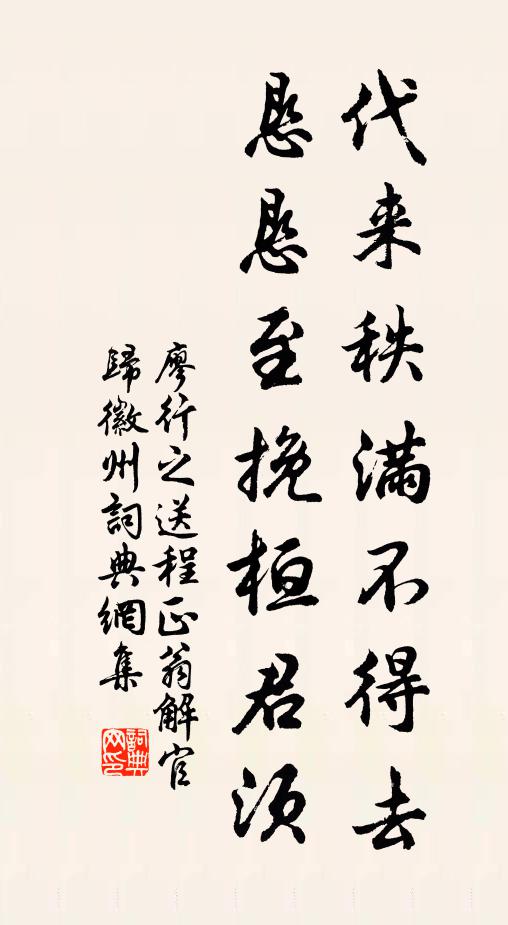 代来秩满不得去
恳恳至挽桓君须
廖行之送程正翁解官
歸徽州詞典網集
詞典网印